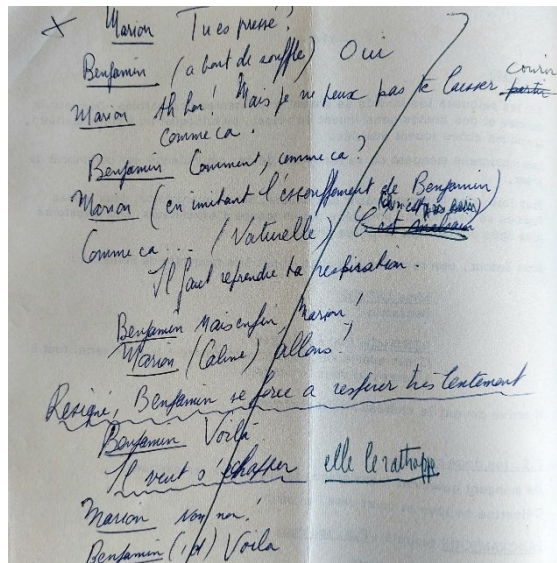 Marion Tu es pressé?
Benjamin (a bout de souffle) Oui
Marion Ah bon! Mais je ne peux pas te laisser partir courir
comme ca.
Benjamin Comment, comme ca?
Marion (en imitant l'essouflement de Benjamin)
Comme ca... (Naturelle) C'est
Il faut reprendre ta respiration.
Benjamin Mais enfin, Marion!
Marion (Caline) allons!
Resigné, Benjamin se force a respirer très lentement
Benjamin Voilà
Il veut s'échapper elle le rattrappe
Marion non non!
Benjamin Voila